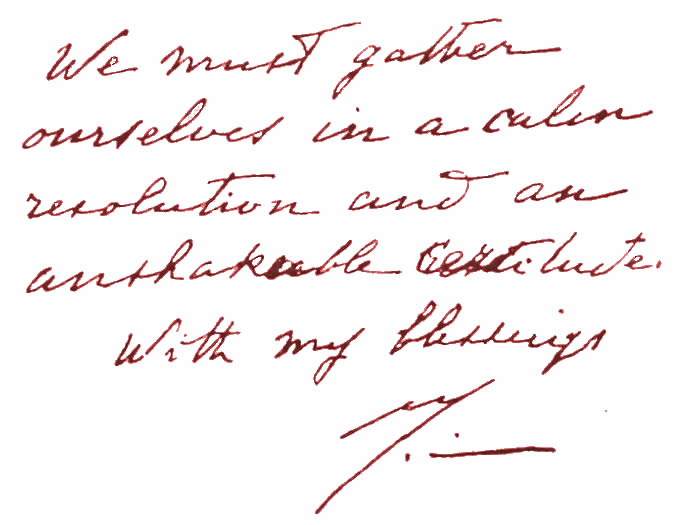 We must gather
ourselves in a calm
resolution and an
unshakeable certitude.
With my blessings